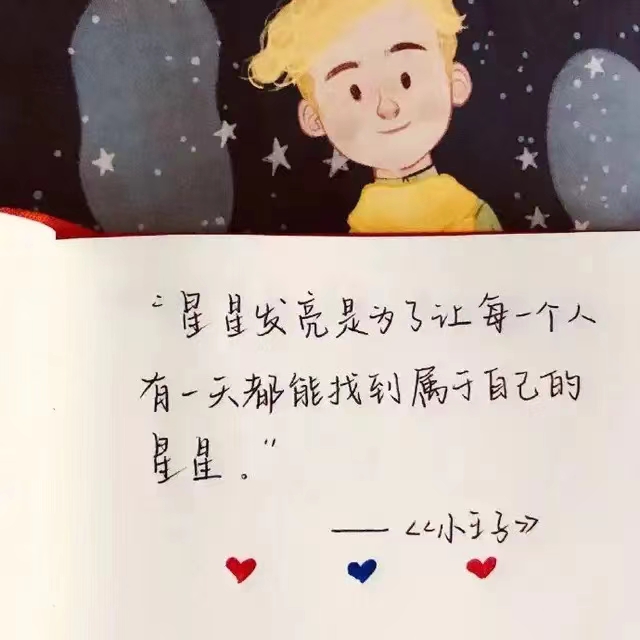 “星星发亮是为了让每一个人
有一天都能找到属于自己的
星星。”
——《小王子》